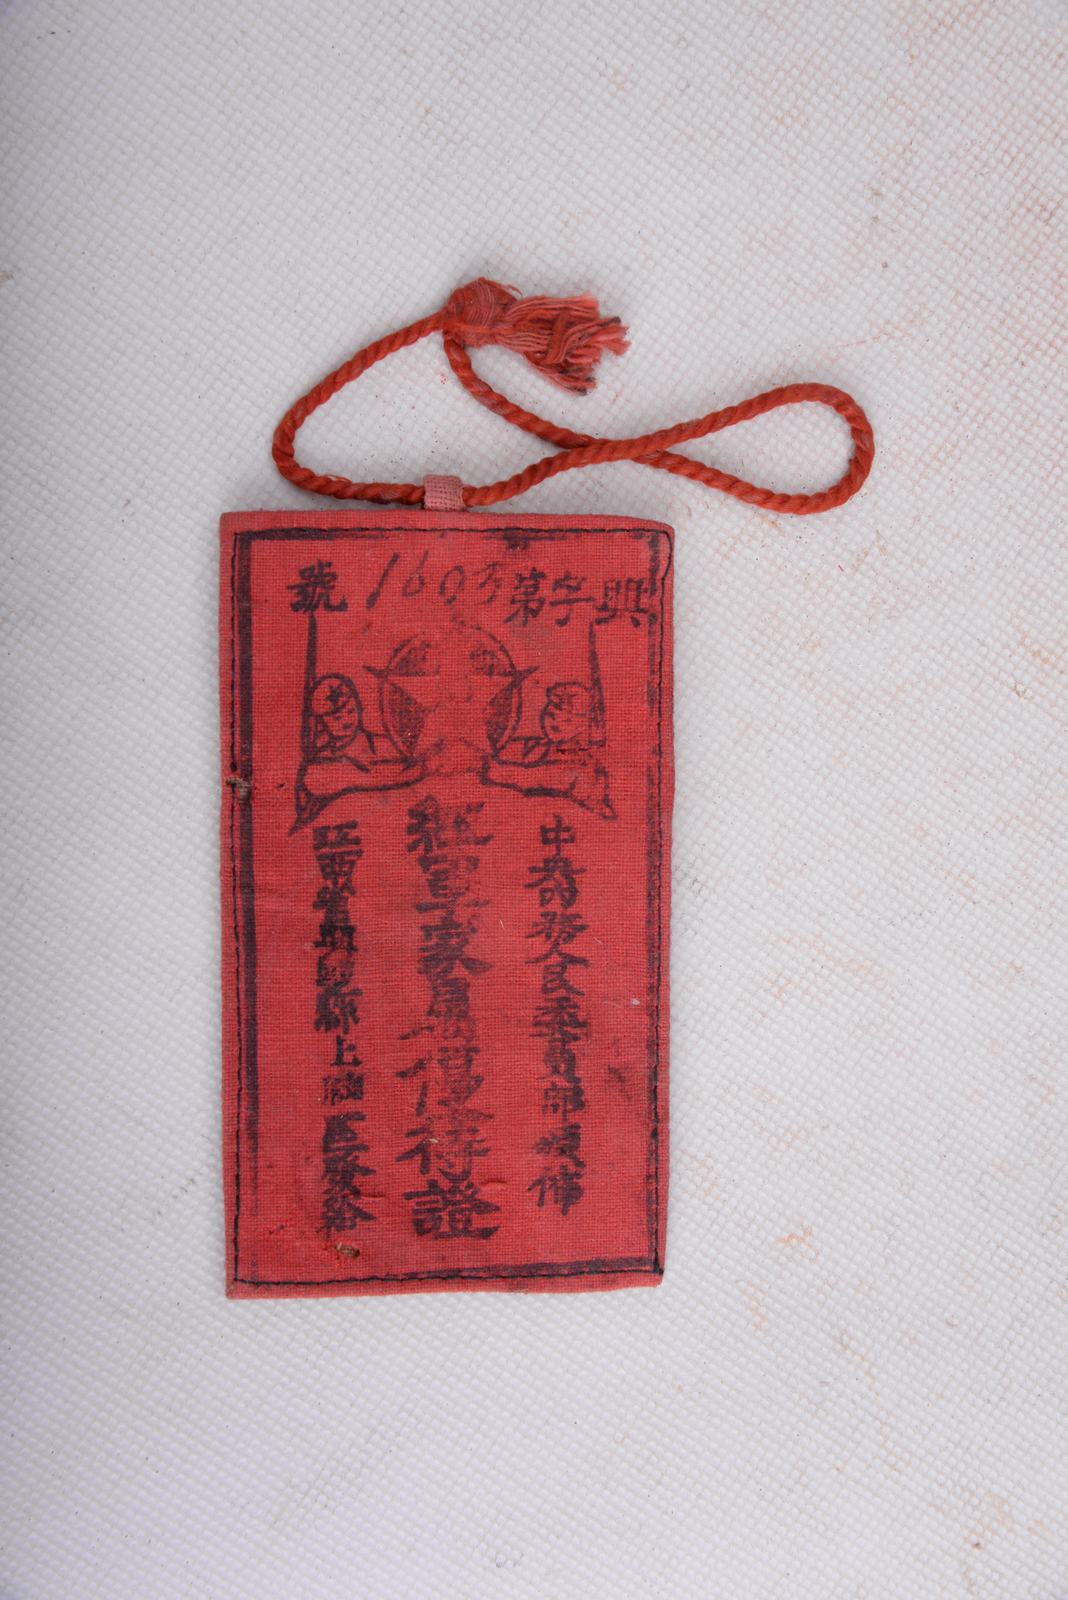 興字第1603號
中央內務人民委員部頒佈
紅軍家屬優待證
江西省興國縣上社區發給